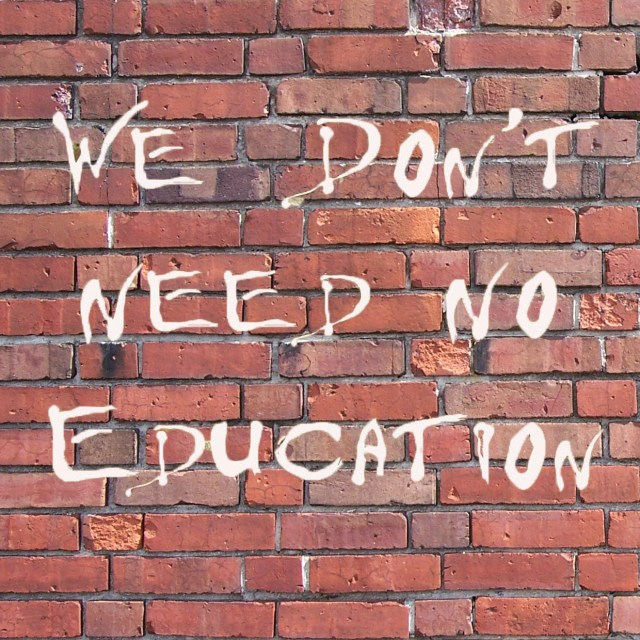 WE DON'T
NEED NO
EDUCATION